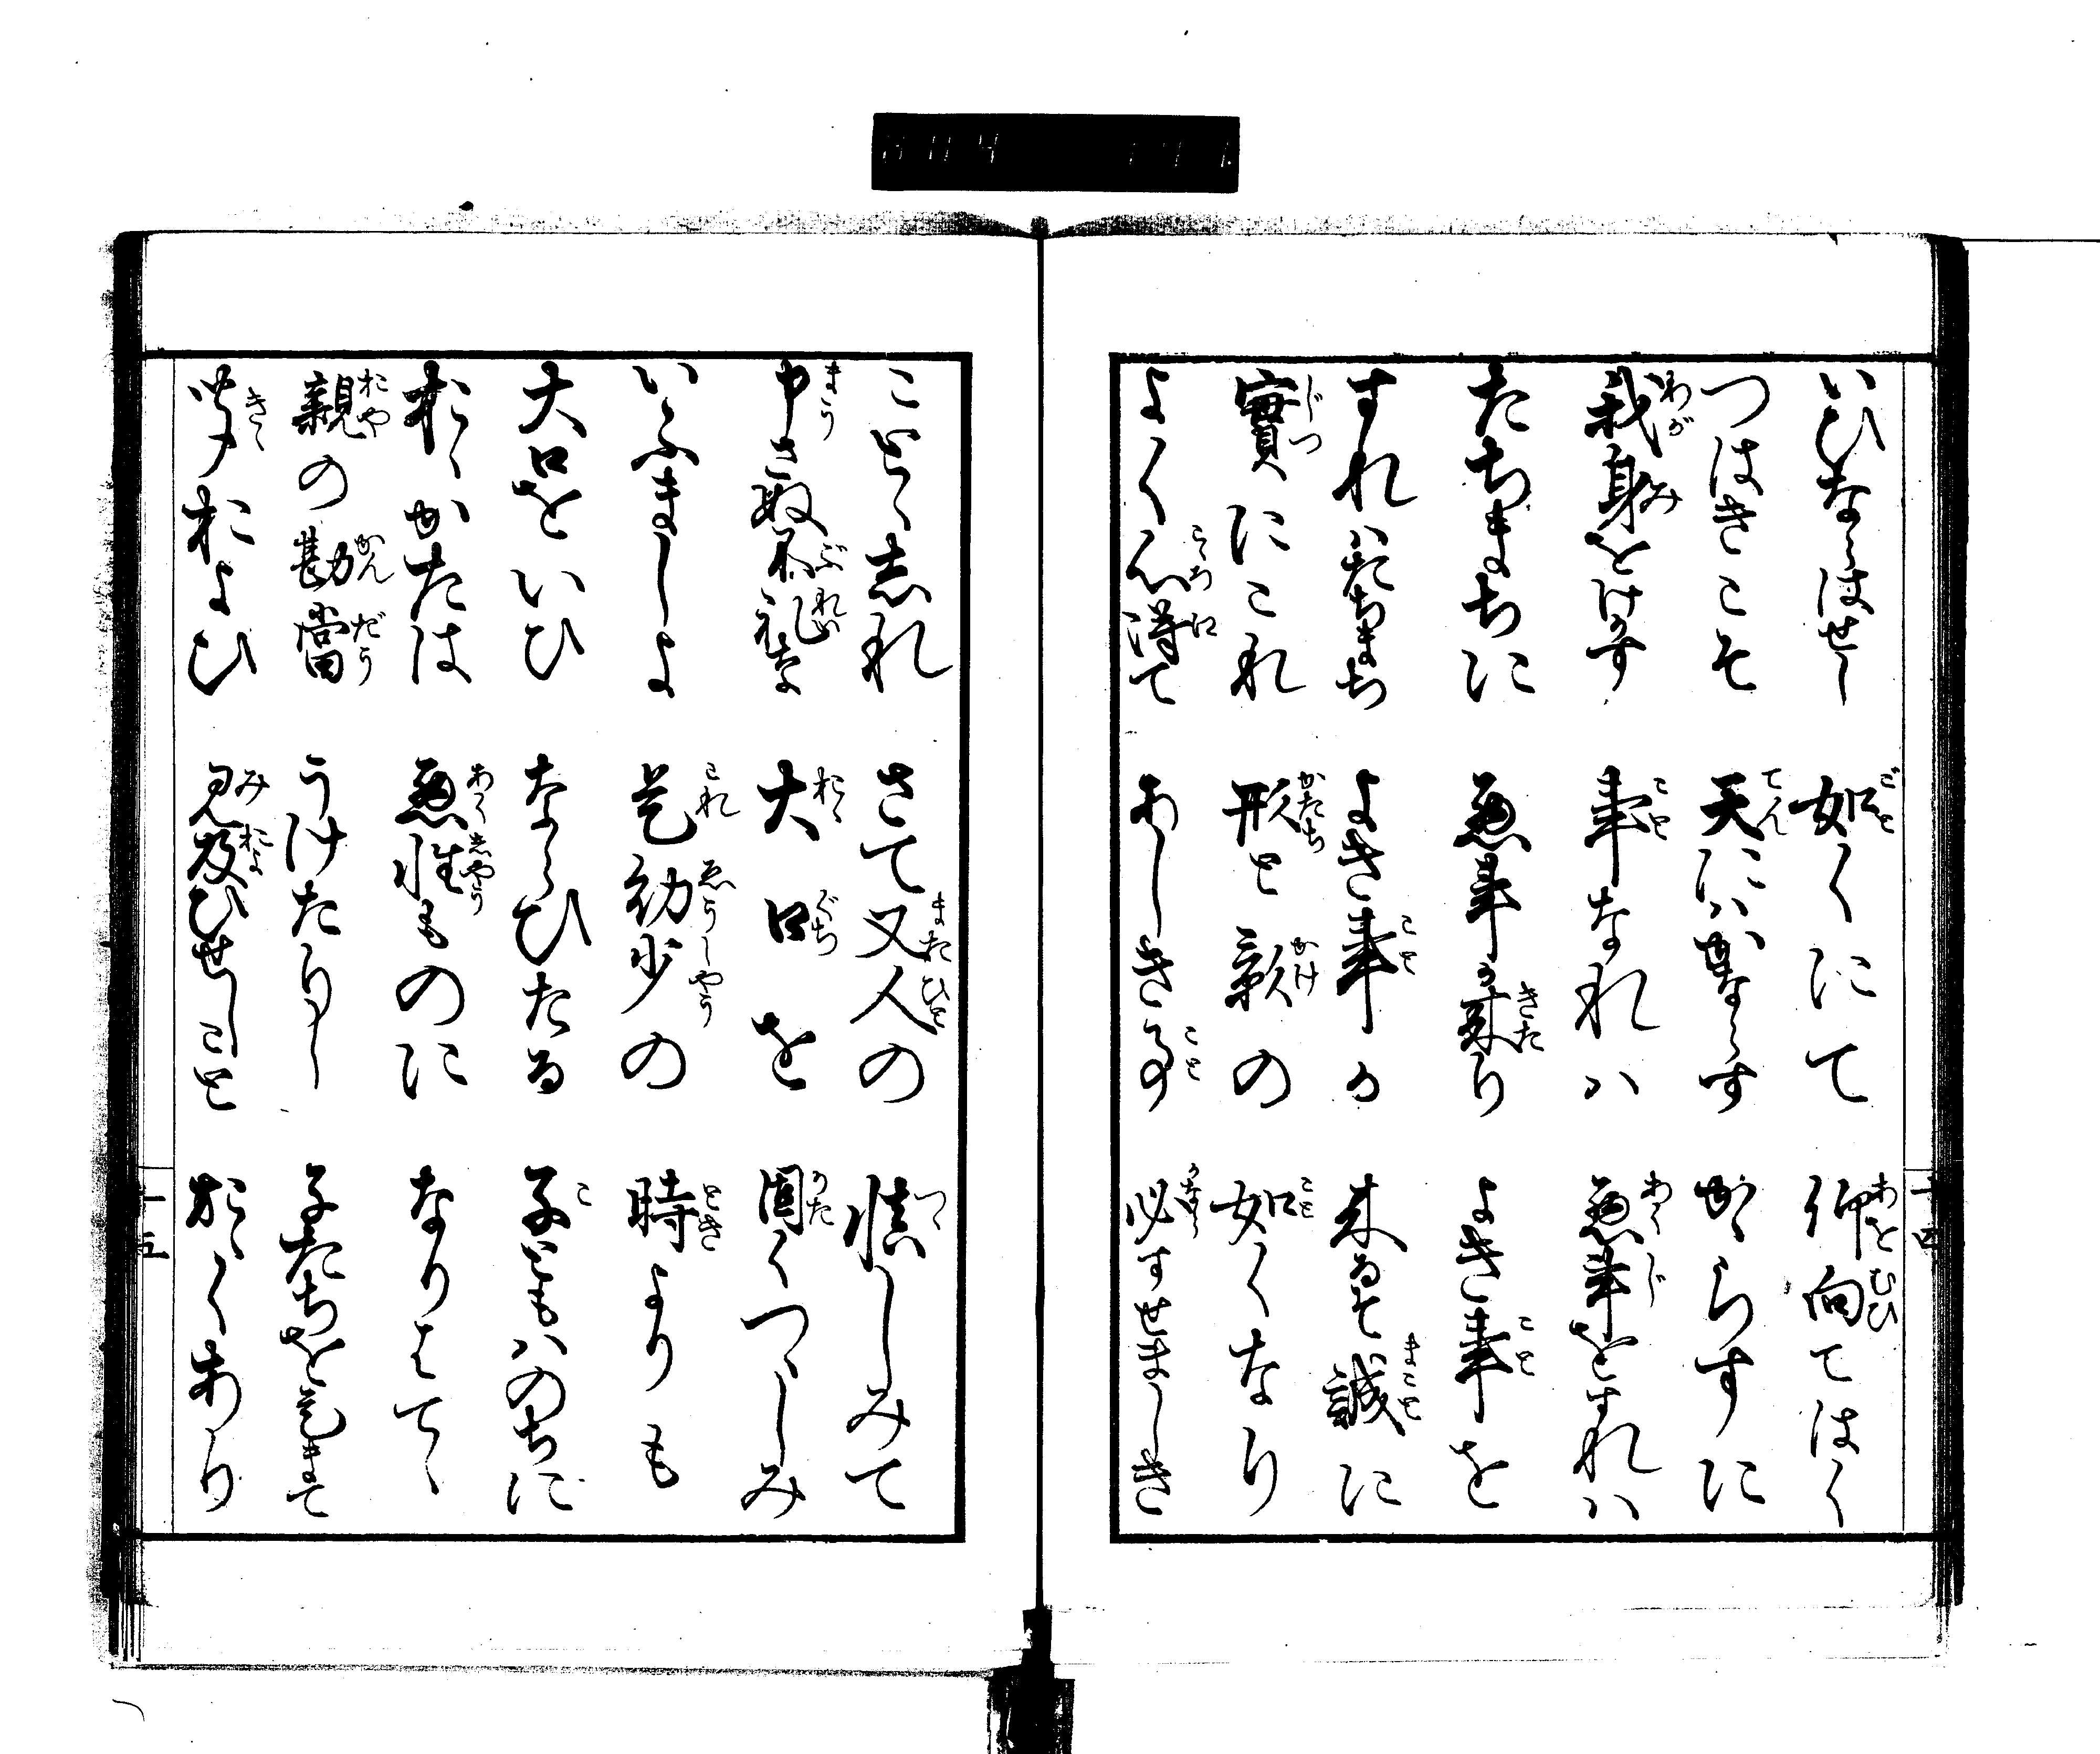 いひならはせし 如くにて 仰向てはく
つはきこそ 天にハかならす かゝらすに
我身をけかす 事なれハ 悪事をすれハ
たちまちに 悪事か来り よき事を
すれハたちまち よき事か 来るそ誠に
實にこれ 形と影の 如くなり
よく心得て あしき事 必すせましき
十四
ことゝ志れ さて又人の 慎しみて
申さぬ不礼な 大口を 固くつゝしみ
いふましよ 是幼少の 時よりも
大口をいひ ならひたる 子ともハのちに
おゝかたは 悪性ものに なりはてゝ
親の勘當 うけたりし 子たちを是まて
聞およひ 見及ひせしこと おゝくあり
十五